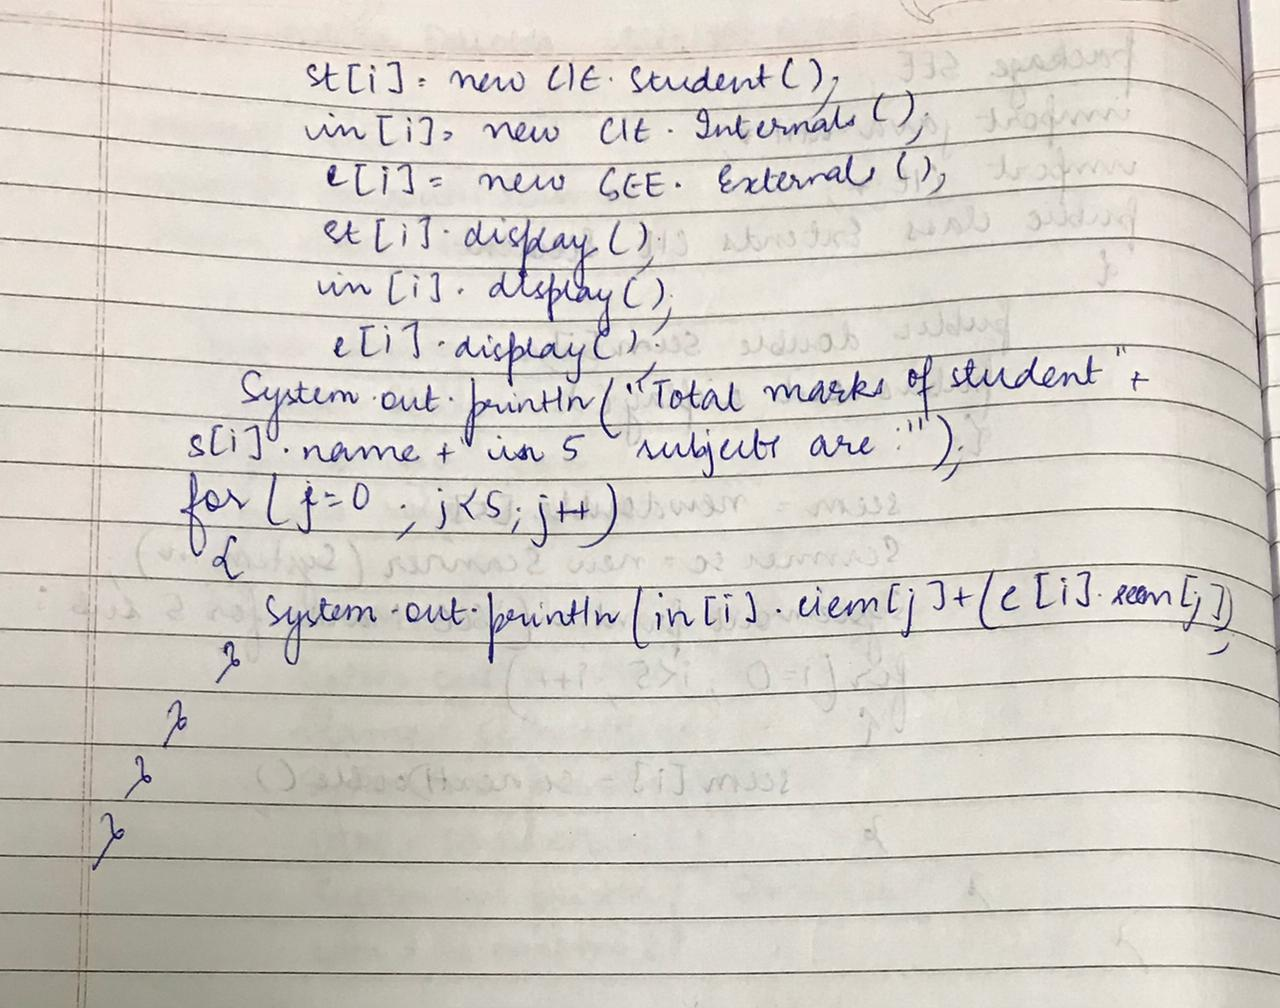 st[i]= new CIE. Student();
in[i]= new CIE. Internals();
e[i]= new SEE. Externals();
st[i].display();
in[i]. display();
e[i].display();
System.out.println("Total marks of student" +
s[i].name + "in 5 subjects are :"");
for (j=0 ; j<5; j++)
{
System.out.println(in[i].ciem[j]+(e[i].seem[j]);
}
}
}
}